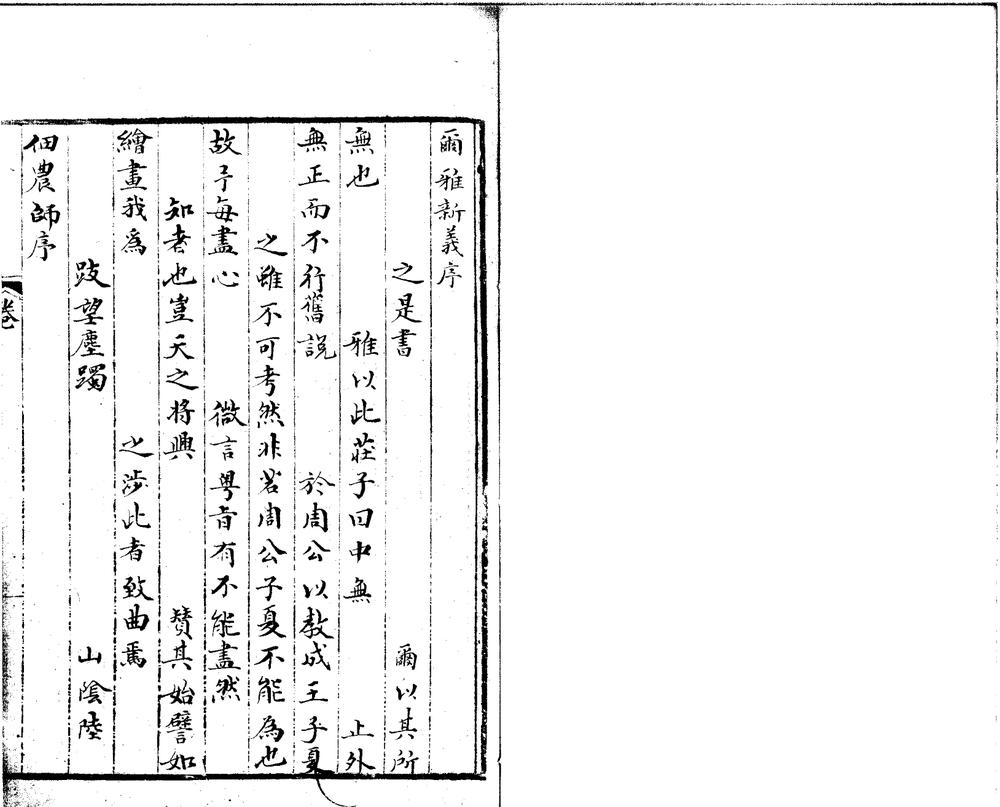 爾雅新義序
之是書　爾以其所
無也　雅以此莊子曰中無　止外
無正而不行舊說　於周公以教成王子夏
之雖不可考然非若周公子夏不能為也
故予每盡心　微言粤旨有不能盡然
知者也豈天之将興　賛其始譬如
繪畫我為　之涉此者致曲焉
跂望塵躅　山陰陸
佃農師序
卷